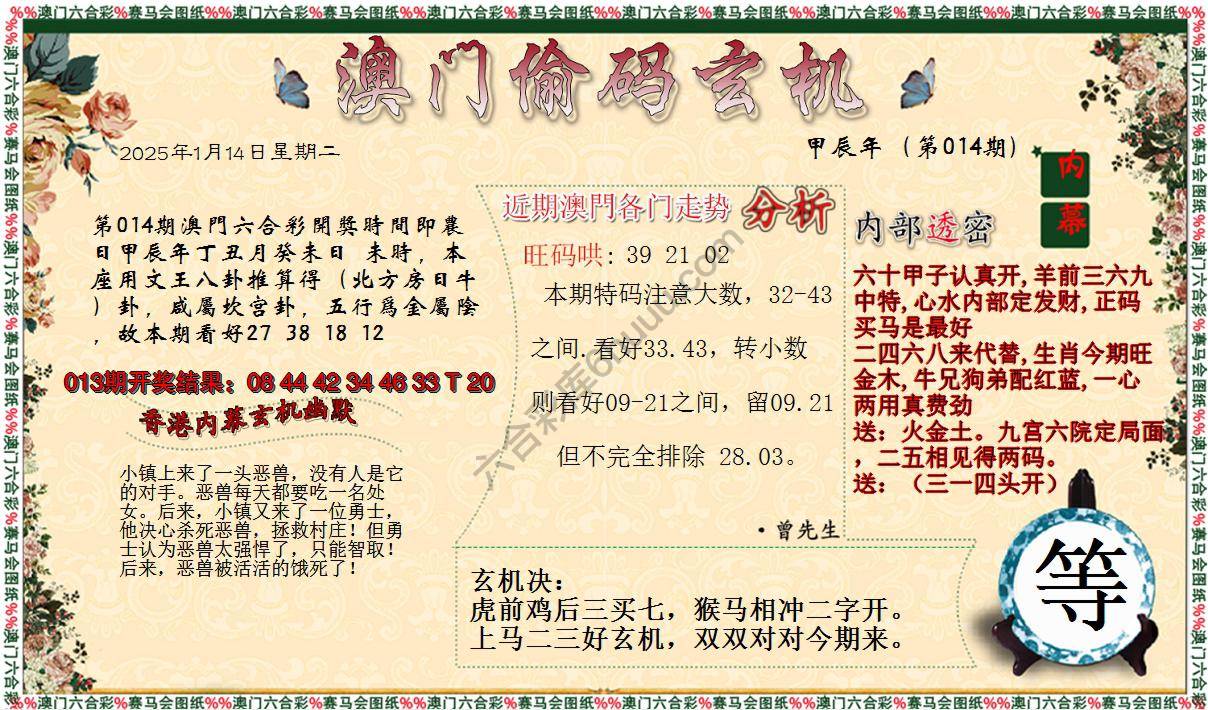 %%澳门六合彩%赛马会图纸%%澳门六合彩%赛马会图纸%%澳门六合彩%赛马会图纸%%澳门六合彩%赛马会图纸%%澳门六合彩%赛马会图纸%%澳门六合彩%赛马会图纸%%
澳门偷码玄机
2025年1月14日星期二
甲辰年（第014期）
内幕
第014期澳門六合彩開獎時間即農
日甲辰年丁丑月癸未日 未時，本
座用文王八卦推算得（北方房日牛
）卦，咸屬坎宫卦，五行爲金屬陰
，故本期看好27 38 18 12
013期开奖结果：08 44 42 34 46 33 T 20
香港内幕玄机幽默
小镇上来了一头恶兽，没有人是它
的对手。恶兽每天都要吃一名处
女。后来，小镇又来了一位勇士，
他决心杀死恶兽，拯救村庄！但勇
士认为恶兽太强悍了，只能智取！
后来，恶兽被活活的饿死了！
近期澳門各门走势 分析
旺码哄: 39 21 02
本期特码注意大数，32-43
之间.看好33.43，转小数
则看好09-21之间，留09.21
但不完全排除 28.03。
·曾先生
内部透密
六十甲子认真开,羊前三六九
中特,心水内部定发财,正码
买马是最好
二四六八来代替,生肖今期旺
金木,牛兄狗弟配红蓝,一心
两用真费劲
送：火金土。九宫六院定局面
，二五相见得两码。
送：（三一四头开）
玄机决：
虎前鸡后三买七，猴马相冲二字开。
上马二三好玄机，双双对对今期来。
等